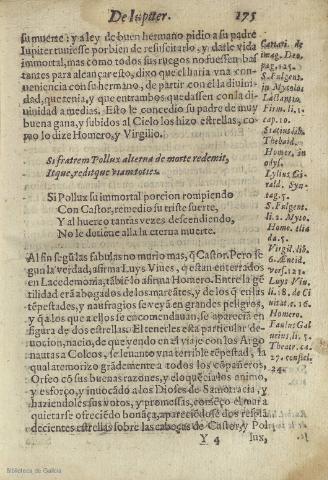 De Iupiter. 175
su muerte: y a ley de buen hermano pidio a su padre
Iupiter tuuiesse por bien de resuscitarlo, y darle vida
immortal, mas como todos sus ruegos no fuessen bas
tantes para alcançar esto, dixo que el haria vna con-
ueniencia con su hermano, de partir con el la diuini-
dad, que tenia, y que entrambos quedassen con la di-
uinidad a medias. Esto le concedio su padre de muy
buena gana, y subidos al Cielo los hizo estrellas, co-
mo lo dize Homero, y Virgilio.
Si fratrem Pollux alterna de morte redemit,
Itque, reditque viam toties.
Si Pollux su immortal porcion rompiendo
Con Castor, remedio su triste suerte,
Y al huerco tantas vezes descendiendo,
No le dotione alla la eterna muerte.
Al fin segũ las fabulas no murio mas, q̃ Castor. Pero se
gun la verdad, afirma Luys Viues, q̃ estan enterrados
en Lacedemonia, tãbiẽ lo afirma Homero. Entre la gẽ
tilidad erã abogados de los mareãtes, y de los q̃ en las
tẽpestades, y naufragios se veyã en grandes peligros,
y q̃ a los que a ellos se encomendauan, se aparecia en
figura de dos estrellas. El tenerles esta particular de-
uocion, nacio, de que yendo en el viaje con los Argo
nautas a Colcos, se leuanto vna terrible tẽpestad, la
qual atemorizo grãdemente a todos los cõpañeros,
Orfeo cõ sus buenas razones, y eloquẽcia los animo,
y esforço, y inuocãdo a los Dioses de Samotracia, y
haziendoles sus votos, y promessas, començo el mar a
quietarse ofreciẽdo bonãça, apareciẽdose dos respla
decientes estrellas sobre las cabeças de Castor, y Pol
Y 4 lux,
Cartari. de
imag. Deo.
pag. 125.
S. Fulgent.
in Mytolo.
Lactancio
Firm. li. 1.
cap. 10.
Statius lib.
Thebaid.
Homer. in
odys.
Lylius Gi-
rald. Syn-
tag. 5.
S. Fulgent.
li. 2. Myto.
Home. ilia
da. 5.
Virgil. lib.
6. Æneid.
vers. 121.
Luys Viu.
li. 18. de Ci
uitat. c. 16.
Homero.
Paulus Gal
Theatr. ca.
Biblioteca de Galicia